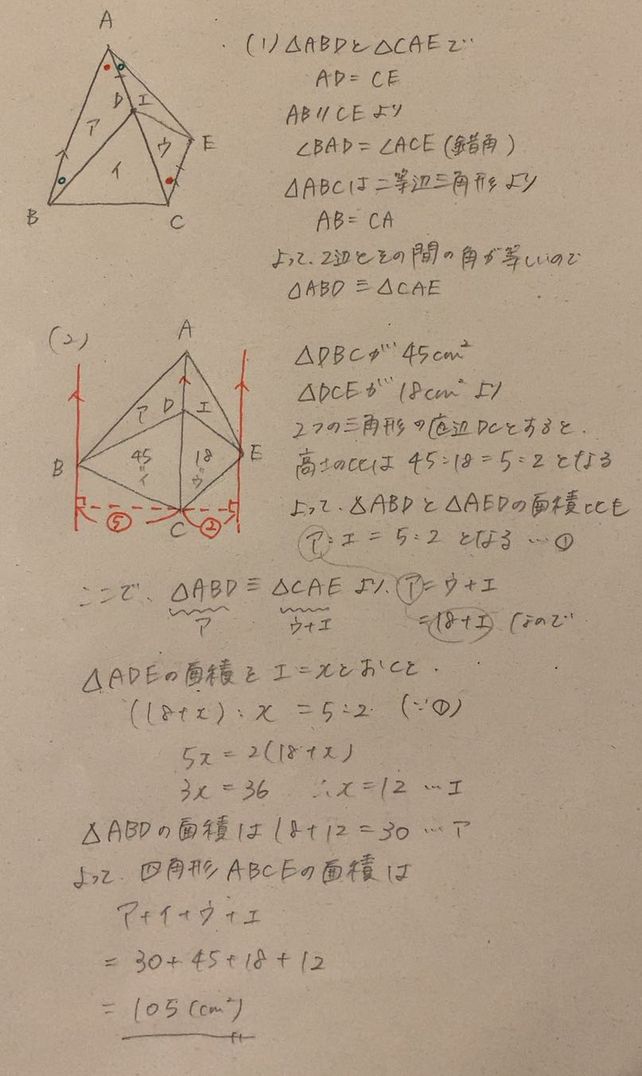 A
D
エ
ア
E
ウ
イ
B
C
(1) △ABDと△CAEで
AD=CE
AB//CEより
∠BAD=∠ACE(錯角)
△ABCは二等辺三角形より
AB=CA
よって、2辺とその間の角が等しいので
△ABD≡△CAE
(2)
A
ア
D
エ
B
45
=
イ
18
=
ウ
E
C
⑤
②
△DBCが45cm²
△DCEが18cm²より
2つの三角形の底辺DCとすると、
高さの比は 45:18=5:2となる
よって、△ABDと△AEDの面積比も
ア:エ=5:2となる…①
ここで、△ABD≡△CAEより、ア=ウ+エ
ア ウ+エ
=18+エ なので
△ADEの面積をエ=xとおくと、
(18+x):x=5:2 (∵①)
5x=2(18+x)
3x=36 ∴x=12…エ
△ABDの面積は18+12=30…ア
よって、四角形ABCEの面積は
ア+イ+ウ+エ
=30+45+18+12
=105(cm²)